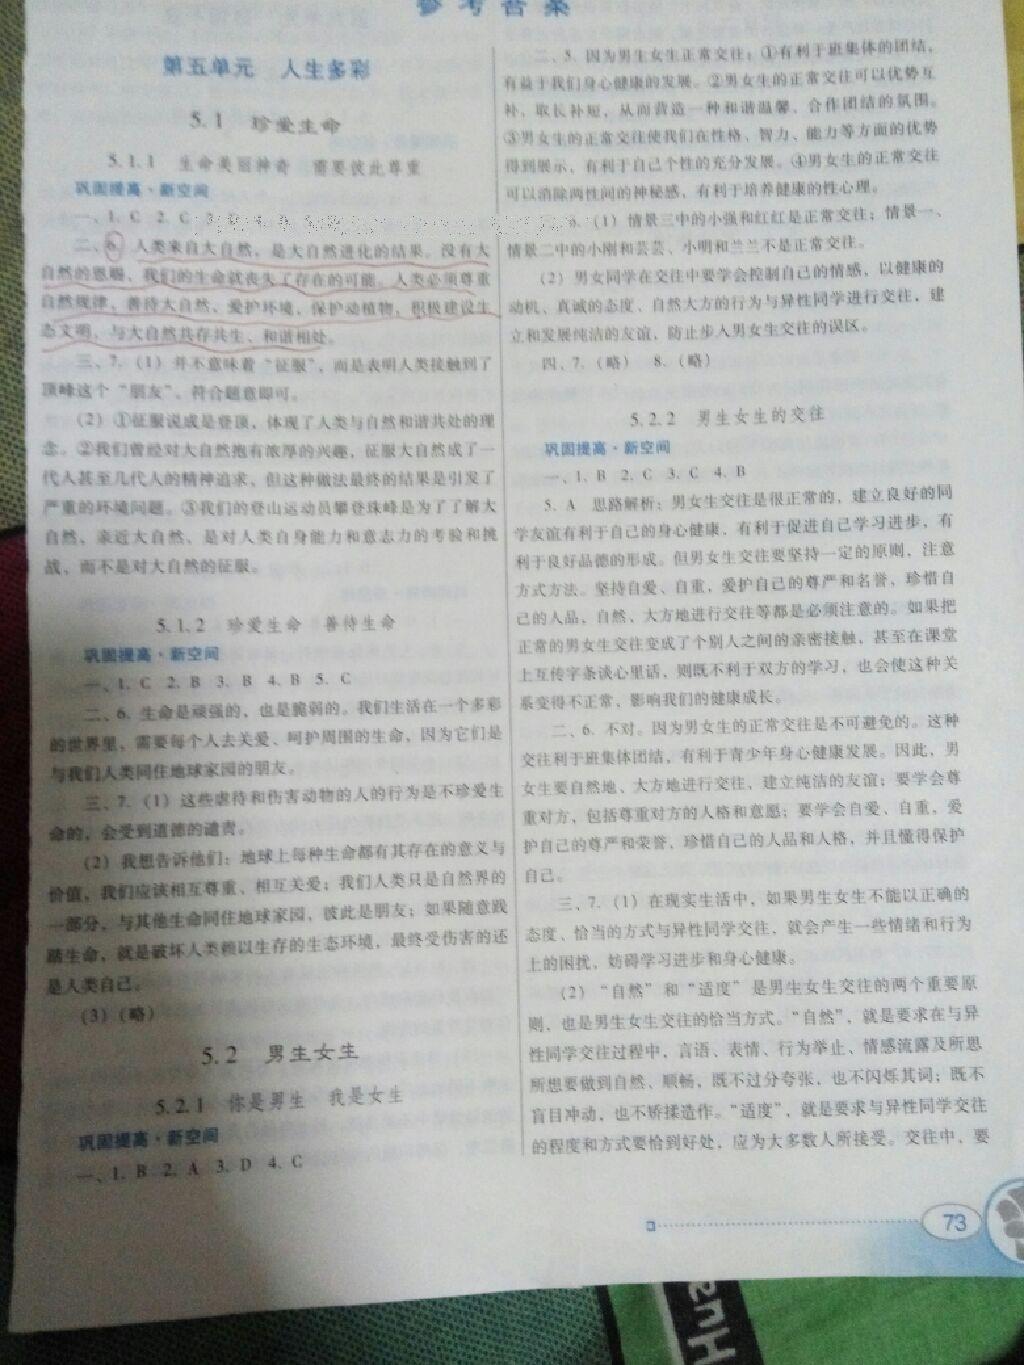 参考答案
第五单元 人生多彩
5.1 珍爱生命
5.1.1 生命美丽神奇 需要彼此尊重
巩固提高·新空间
一、1. C 2. C 3.
二、6. 人类来自大自然，是大自然进化的结果。没有大
自然的恩赐，我们的生命就丧失了存在的可能。人类必须尊重
自然规律，善待大自然、爱护环境，保护动植物，积极建设生
态文明，与大自然共存共生、和谐相处。
三、7.（1）并不意味着“征服”，而是表明人类接触到了
顶峰这个“朋友”。符合题意即可。
（2）①征服说成是登顶，体现了人类与自然和谐共处的理
念。②我们曾经对大自然抱有浓厚的兴趣，征服大自然成了一
代人甚至几代人的精神追求，但这种做法最终的结果是引发了
严重的环境问题。③我们的登山运动员攀登珠峰是为了了解大
自然，亲近大自然、是对人类自身能力和意志力的考验和挑
战，而不是对大自然的征服。
5.1.2 珍爱生命 善待生命
巩固提高·新空间
一、1. C 2. B 3. B 4. B 5. C
二、6. 生命是顽强的，也是脆弱的。我们生活在一个多彩
的世界里，需要每个人去关爱、呵护周围的生命，因为它们是
与我们人类同住地球家园的朋友。
三、7.（1）这些虐待和伤害动物的人的行为是不珍爱生
命的，会受到道德的谴责。
（2）我想告诉他们：地球上每种生命都有其存在的意义与
价值，我们应该相互尊重、相互关爱；我们人类只是自然界的
一部分，与其他生命同住地球家园，彼此是朋友；如果随意践
踏生命，就是破坏人类赖以生存的生态环境，最终受伤害的还
是人类自己。
（3）（略）
5.2 男生女生
5.2.1 你是男生 我是女生
巩固提高·新空间
一、1. B 2. A 3. D 4. C
二、5. 因为男生女生正常交往：①有利于班集体的团结，
有益于我们身心健康的发展。②男女生的正常交往可以优势互
补，取长补短，从而营造一种和谐温馨、合作团结的氛围。
③男女生的正常交往使我们在性格、智力、能力等方面的优势
得到展示，有利于自己个性的充分发展。④男女生的正常交往
可以消除两性间的神秘感，有利于培养健康的性心理。
6.（1）情景三中的小强和红红是正常交往；情景一、
情景二中的小刚和芸芸、小明和兰兰不是正常交往。
（2）男女同学在交往中要学会控制自己的情感，以健康的
动机、真诚的态度、自然大方的行为与异性同学进行交往，建
立和发展纯洁的友谊，防止步入男女生交往的误区。
四、7.（略） 8.（略）
5.2.2 男生女生的交往
巩固提高·新空间
一、1. B 2. C 3. C 4. B
5. A 思路解析：男女生交往是很正常的，建立良好的同
学友谊有利于自己的身心健康，有利于促进自己学习进步，有
利于良好品德的形成。但男女生交往要坚持一定的原则，注意
方式方法。坚持自爱、自重，爱护自己的尊严和名誉，珍惜自
己的人品，自然、大方地进行交往等都是必须注意的。如果把
正常的男女生交往变成了个别人之间的亲密接触，甚至在课堂
上互传字条谈心里话，则既不利于双方的学习，也会使这种关
系变得不正常，影响我们的健康成长。
二、6. 不对。因为男女生的正常交往是不可避免的。这种
交往利于班集体团结，有利于青少年身心健康发展。因此，男
女生要自然地、大方地进行交往，建立纯洁的友谊；要学会尊
重对方，包括尊重对方的人格和意愿；要学会自爱、自重，爱
护自己的尊严和荣誉，珍惜自己的人品和人格，并且懂得保护
自己。
三、7.（1）在现实生活中，如果男生女生不能以正确的
态度、恰当的方式与异性同学交往，就会产生一些情绪和行为
上的困扰，妨碍学习进步和身心健康。
（2）“自然”和“适度”是男生女生交往的两个重要原
则，也是男生女生交往的恰当方式。“自然”，就是要求在与异
性同学交往过程中，言语、表情、行为举止、情感流露及所思
所想要做到自然、顺畅，既不过分夸张，也不闪烁其词；既不
盲目冲动，也不矫揉造作。“适度”，就是要求与异性同学交往
的程度和方式要恰到好处，应为大多数人所接受。交往中，要
73